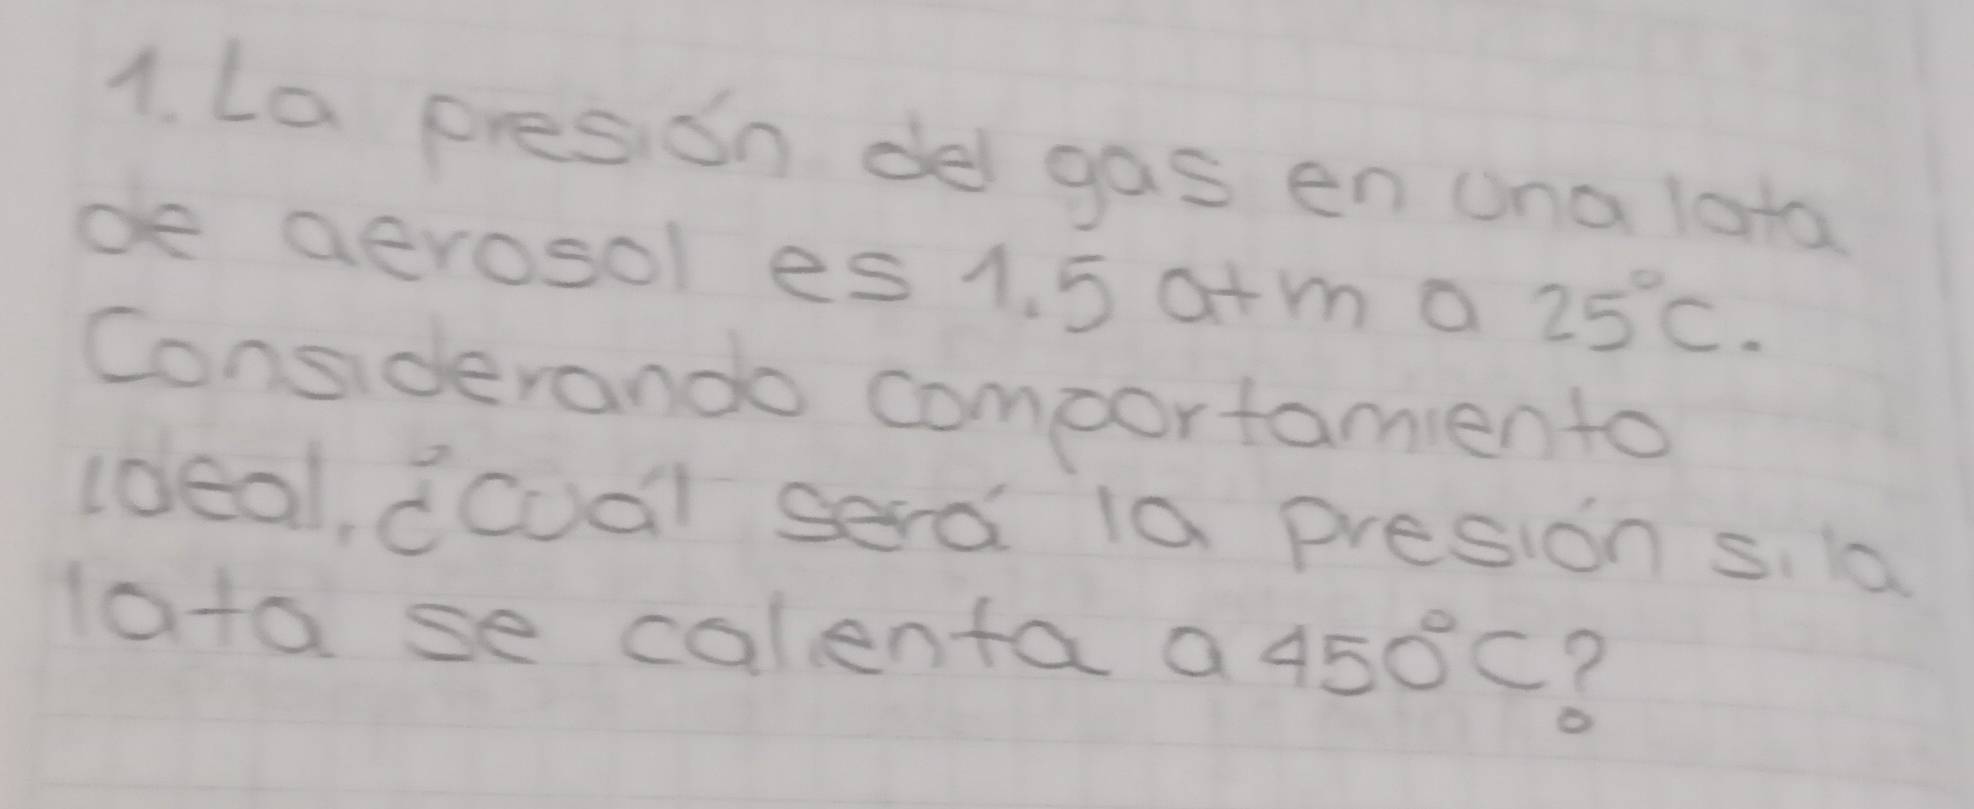 1. La presión del gas en una lata
de aerosol es 1.5 atm a 25°C.
Considerando comportamiento
ideal, ¿Cuál será la presión si la
lata se calienta a 450°C?